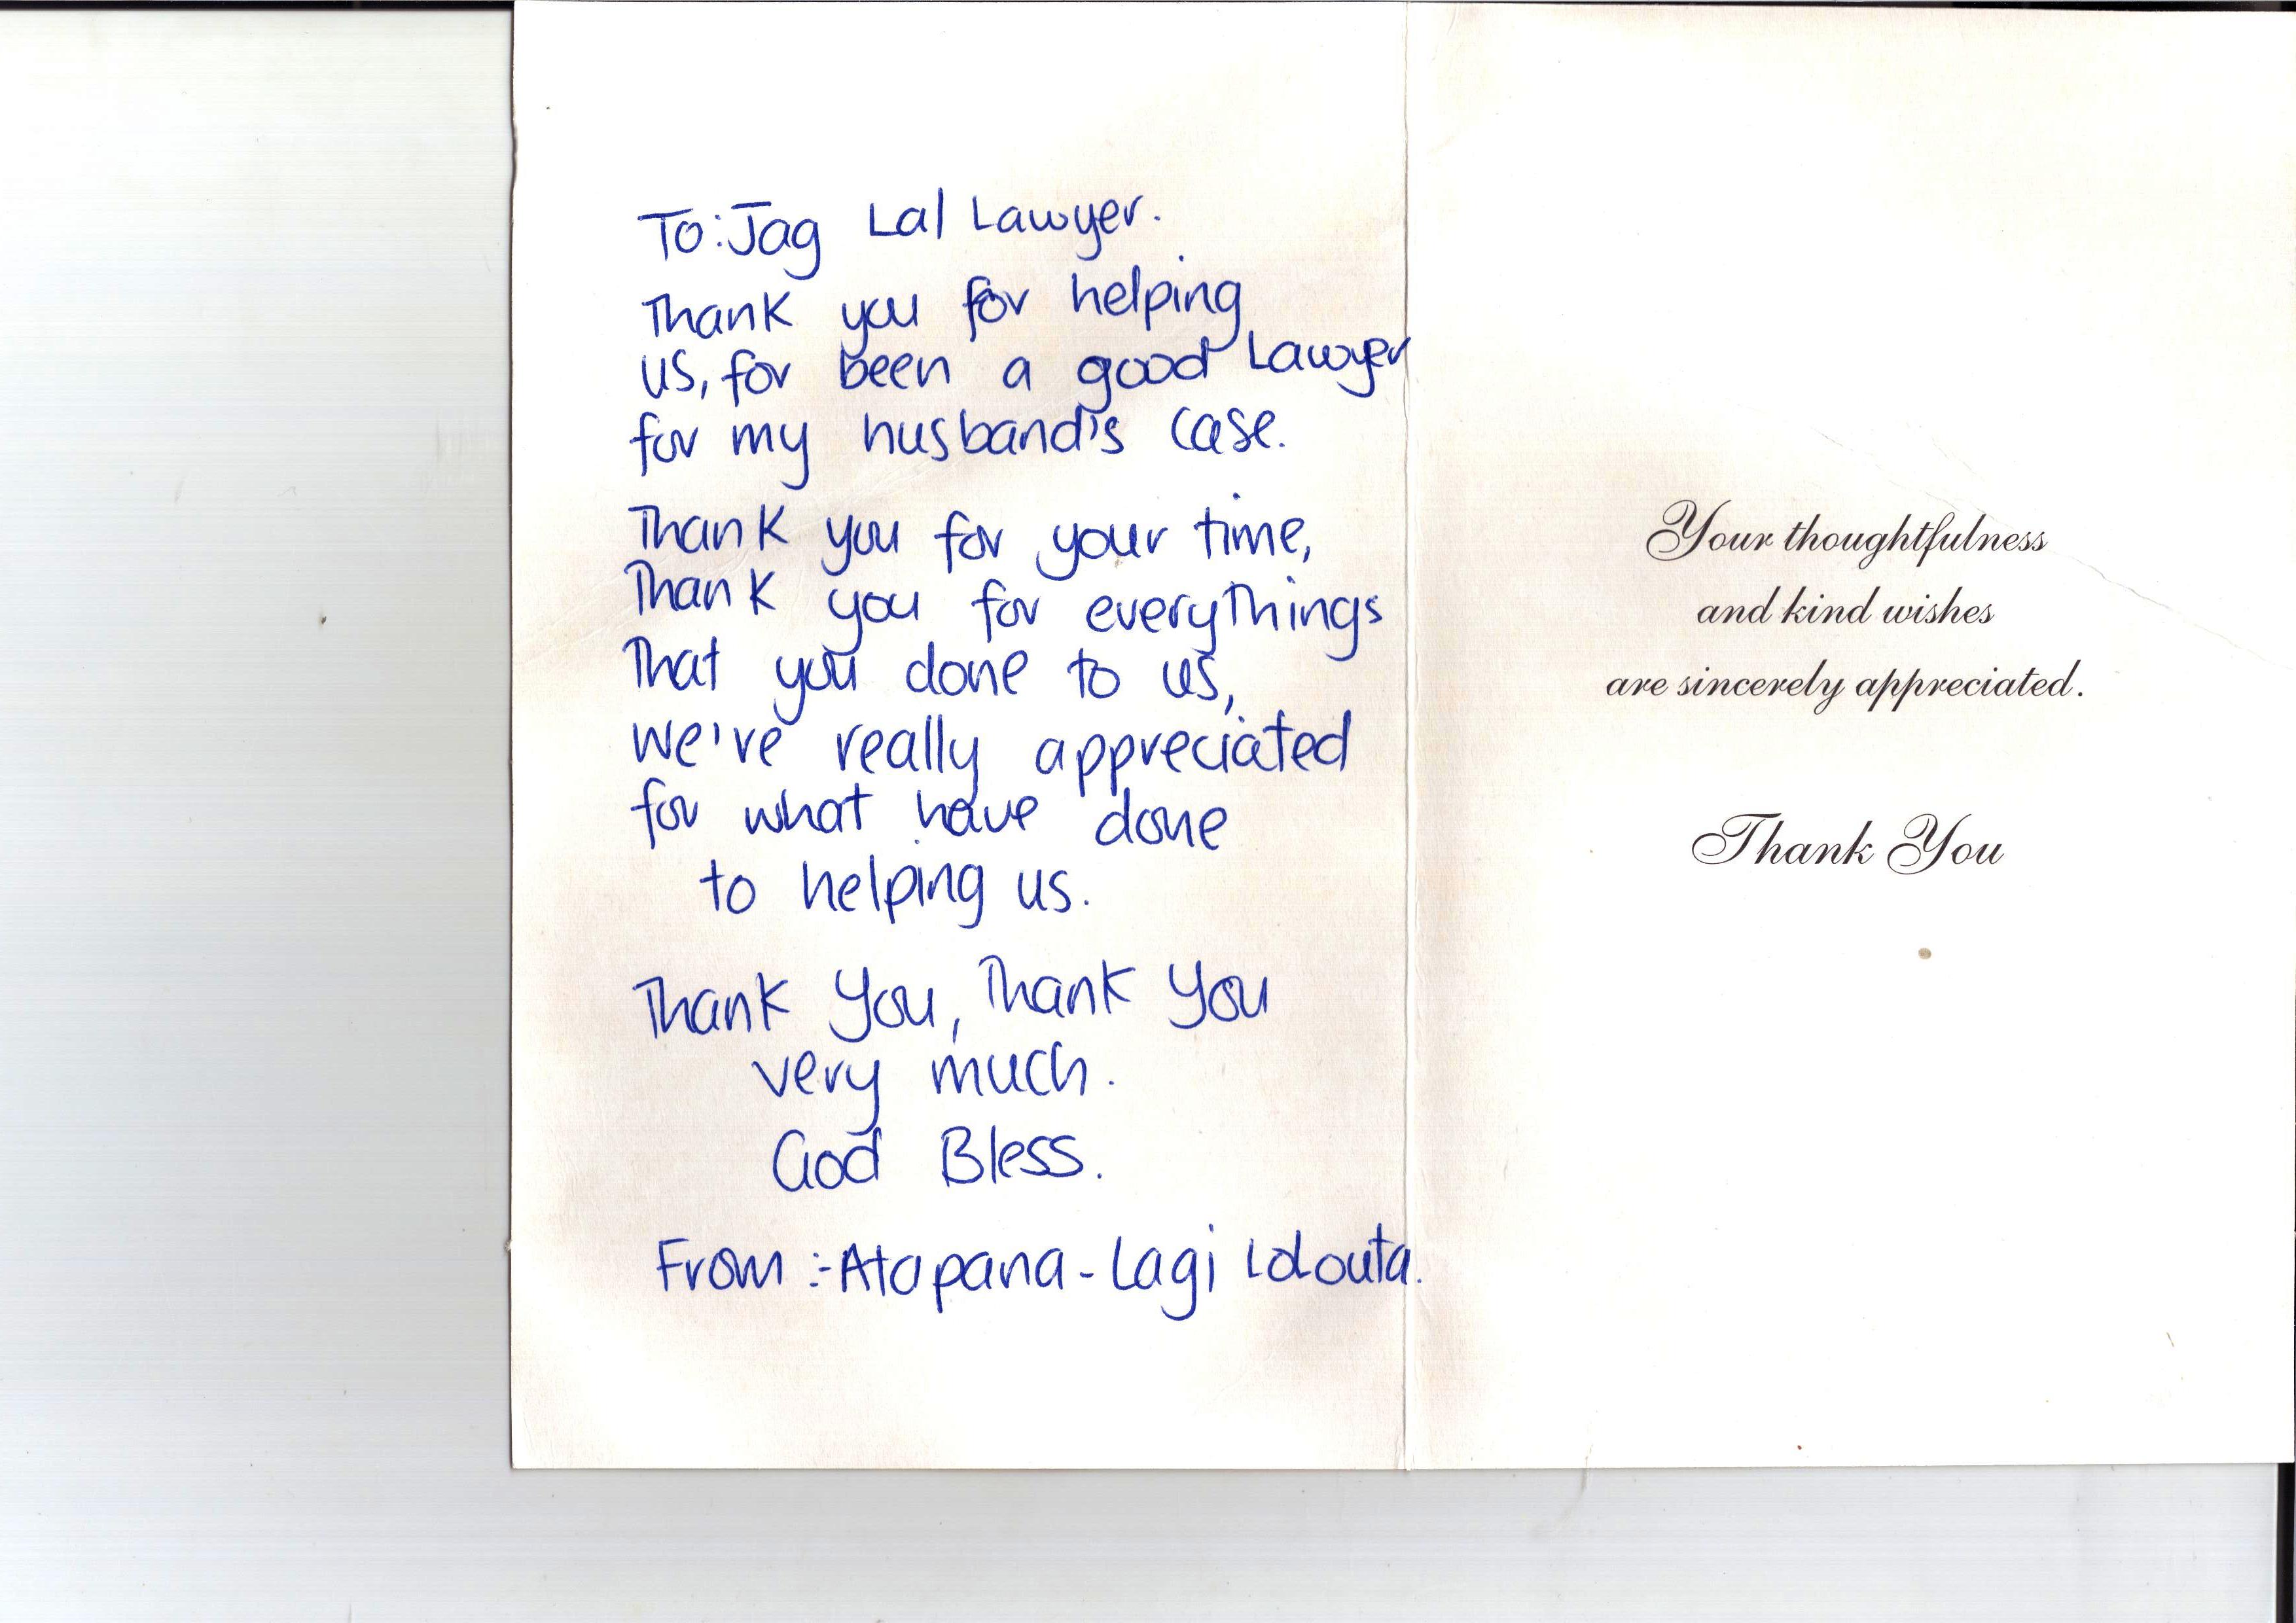 To: Jag Lal Lawyer.
Thank you for helping
us, for been a good Lawyer
for my husband's case.
Thank you for your time,
Thank you for everythings
That you done to us,
we've really appreciated
for what have done
to helping us.
Thank You, Thank You
very much.
God Bless.
From :- Atapana - Lagi Lolouta.
Your thoughtfulness
and kind wishes
are sincerely appreciated.
Thank You